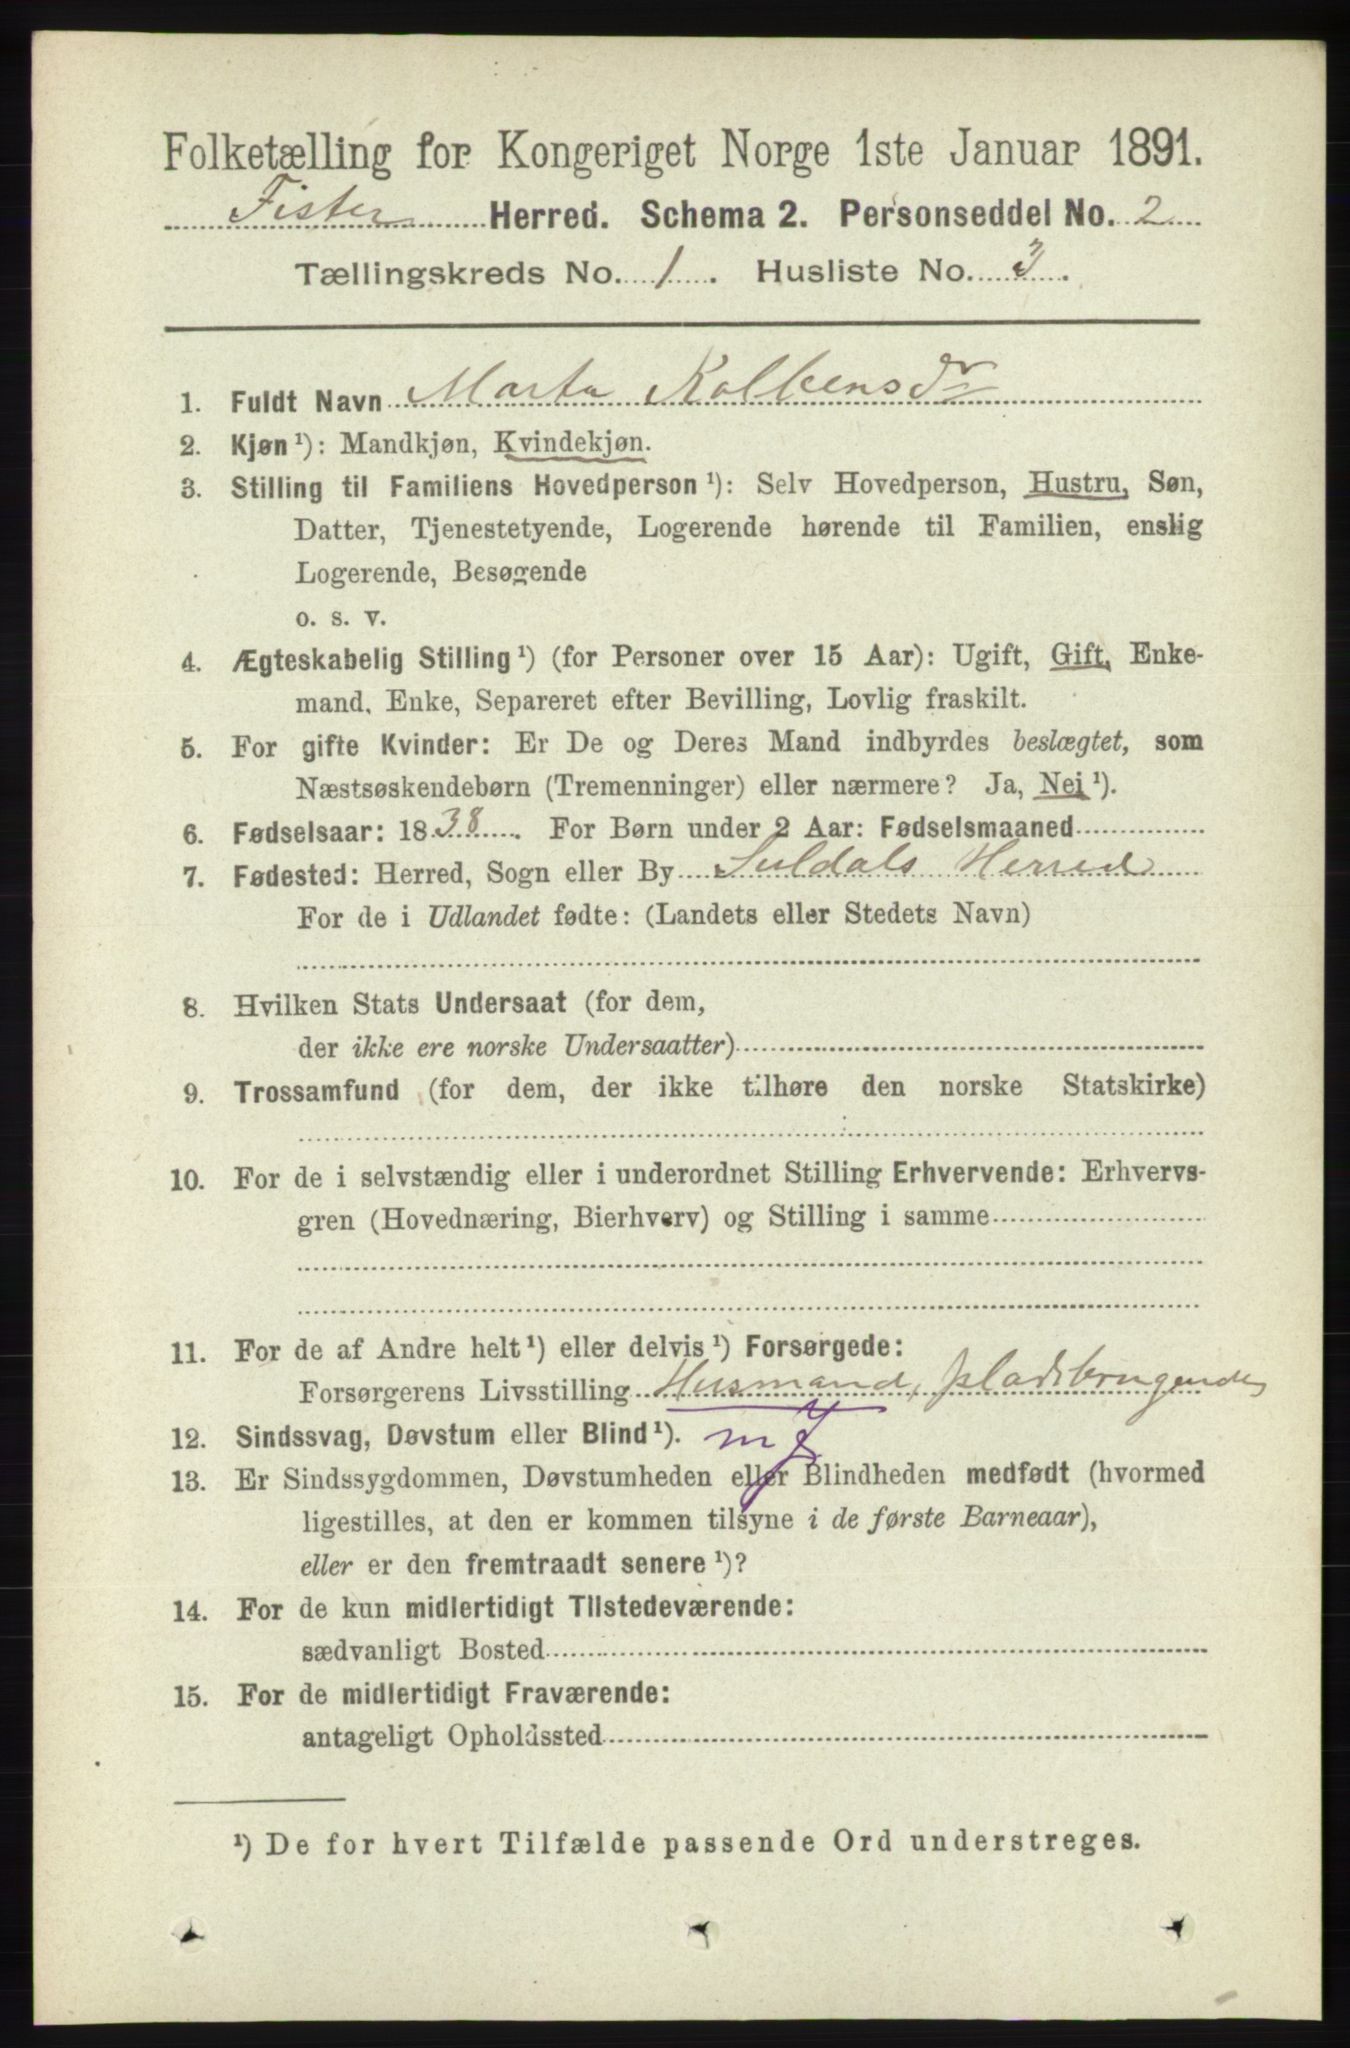 Folketælling for Kongeriget Norge 1ste Januar 1891.
Fister Herred. Schema 2. Personseddel No. 2
Tællingskreds No. 1. Husliste No. 3.
1. Fuldt Navn Marta Kolbensdr
2. Kjøn ¹): Mandkjøn, Kvindekjøn.
3. Stilling til Familiens Hovedperson ¹): Selv Hovedperson, Hustru, Søn,
Datter, Tjenestetyende, Logerende hørende til Familien, enslig
Logerende, Besøgende
o. s. v.
4. Ægteskabelig Stilling ¹) (for Personer over 15 Aar): Ugift, Gift, Enke-
mand, Enke, Separeret efter Bevilling, Lovlig fraskilt.
5. For gifte Kvinder: Er De og Deres Mand indbyrdes beslægtet, som
Næstsøskendebørn (Tremenninger) eller nærmere? Ja, Nei ¹).
6. Fødselsaar: 1838. For Børn under 2 Aar: Fødselsmaaned
7. Fødested: Herred, Sogn eller By Suldals Herred
For de i Udlandet fødte: (Landets eller Stedets Navn)
8. Hvilken Stats Undersaat (for dem,
der ikke ere norske Undersaatter)
9. Trossamfund (for dem, der ikke tilhøre den norske Statskirke)
10. For de i selvstændig eller i underordnet Stilling Erhvervende: Erhvervs-
gren (Hovednæring, Bierhverv) og Stilling i samme
11. For de af Andre helt ¹) eller delvis ¹) Forsørgede:
Forsørgerens Livsstilling Husmand, pladsbrugende
12. Sindssvag, Døvstum eller Blind ¹).
13. Er Sindssygdommen, Døvstumheden eller Blindheden medfødt (hvormed
ligestilles, at den er kommen tilsyne i de første Barneaar),
eller er den fremtraadt senere ¹)?
14. For de kun midlertidigt Tilstedeværende:
sædvanligt Bosted
15. For de midlertidigt Fraværende:
antageligt Opholdssted
¹) De for hvert Tilfælde passende Ord understreges.